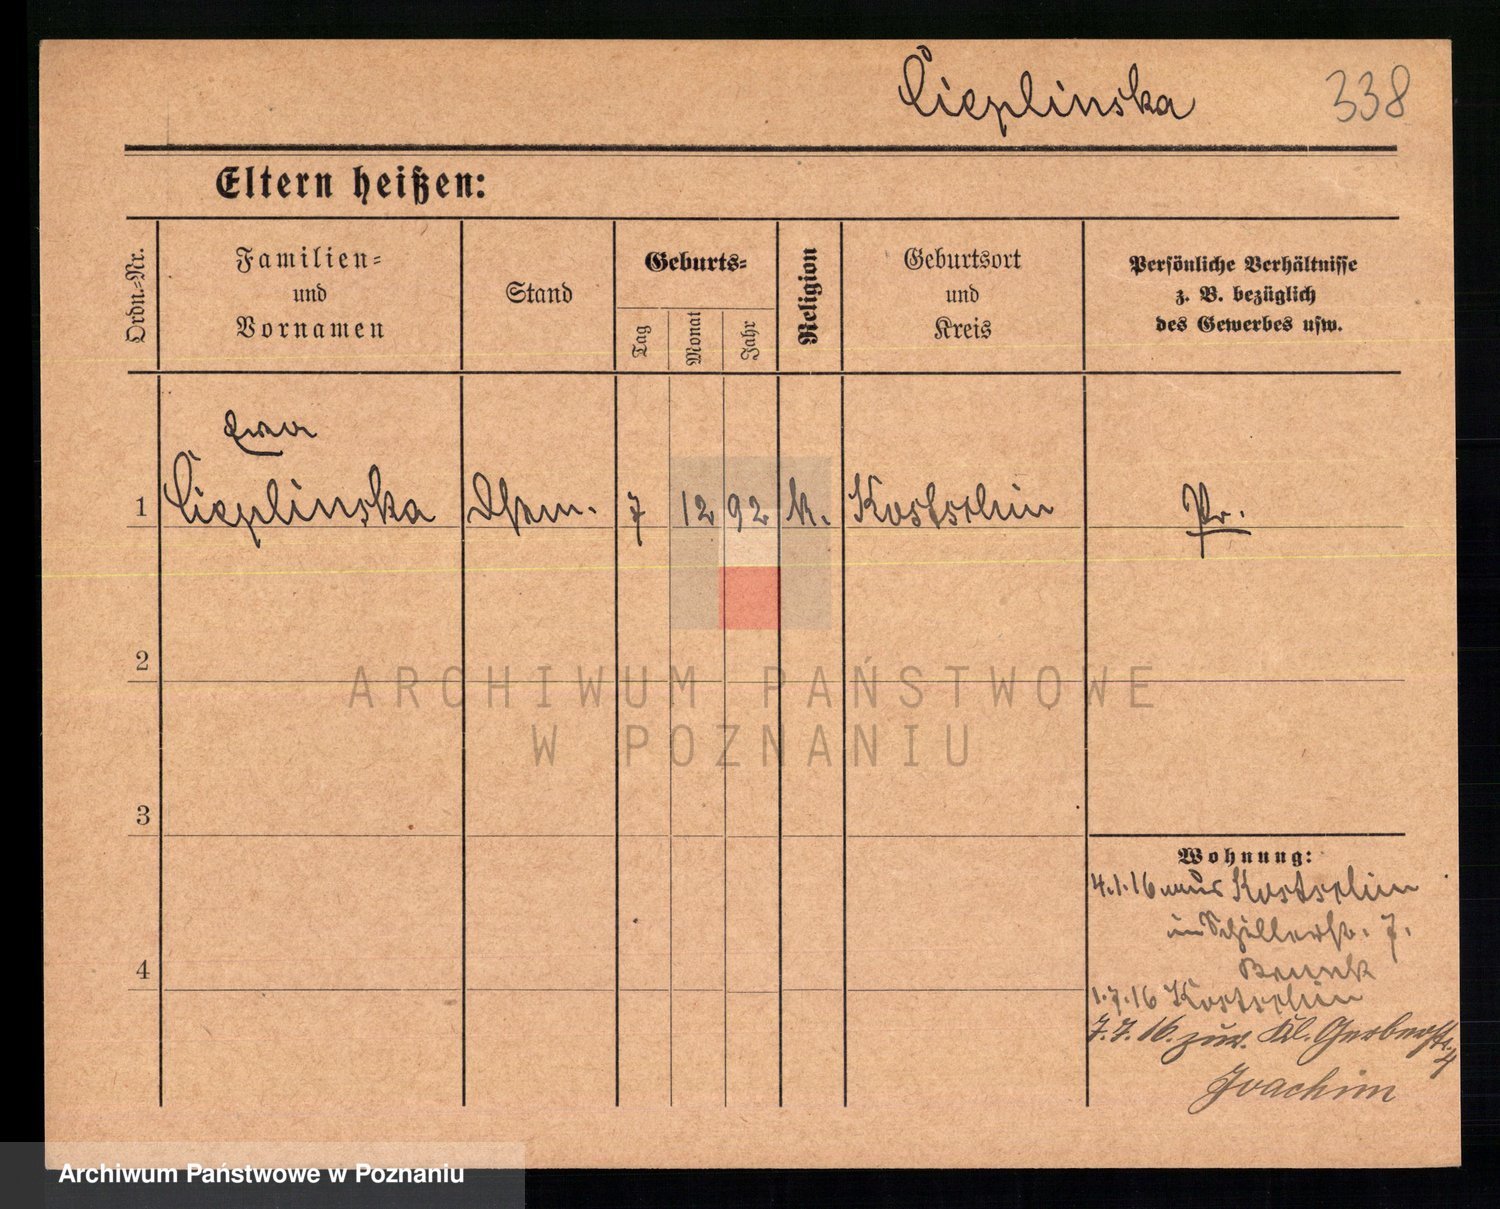 Cieplinska 338
Eltern heißen:
Ordn.=Nr.
Familien=
und
Vornamen
Stand
Geburts=
Tag
Monat
Jahr
Religion
Geburtsort
und
Kreis
Persönliche Verhältnisse
z. B. bezüglich
des Gewerbes usw.
Eva
1 Cieplinska 7 12 92 k. Kostschin Pr.
2
3
4
Wohnung:
4.1.16 aus Kostschin
in Schillerstr. 7.
1.7.16 Kostschin
7.7.16. zur. Kl. Gerberstr. 4
Joachim
ARCHIWUM PAŃSTWOWE
W POZNANIU
Archiwum Państwowe w Poznaniu